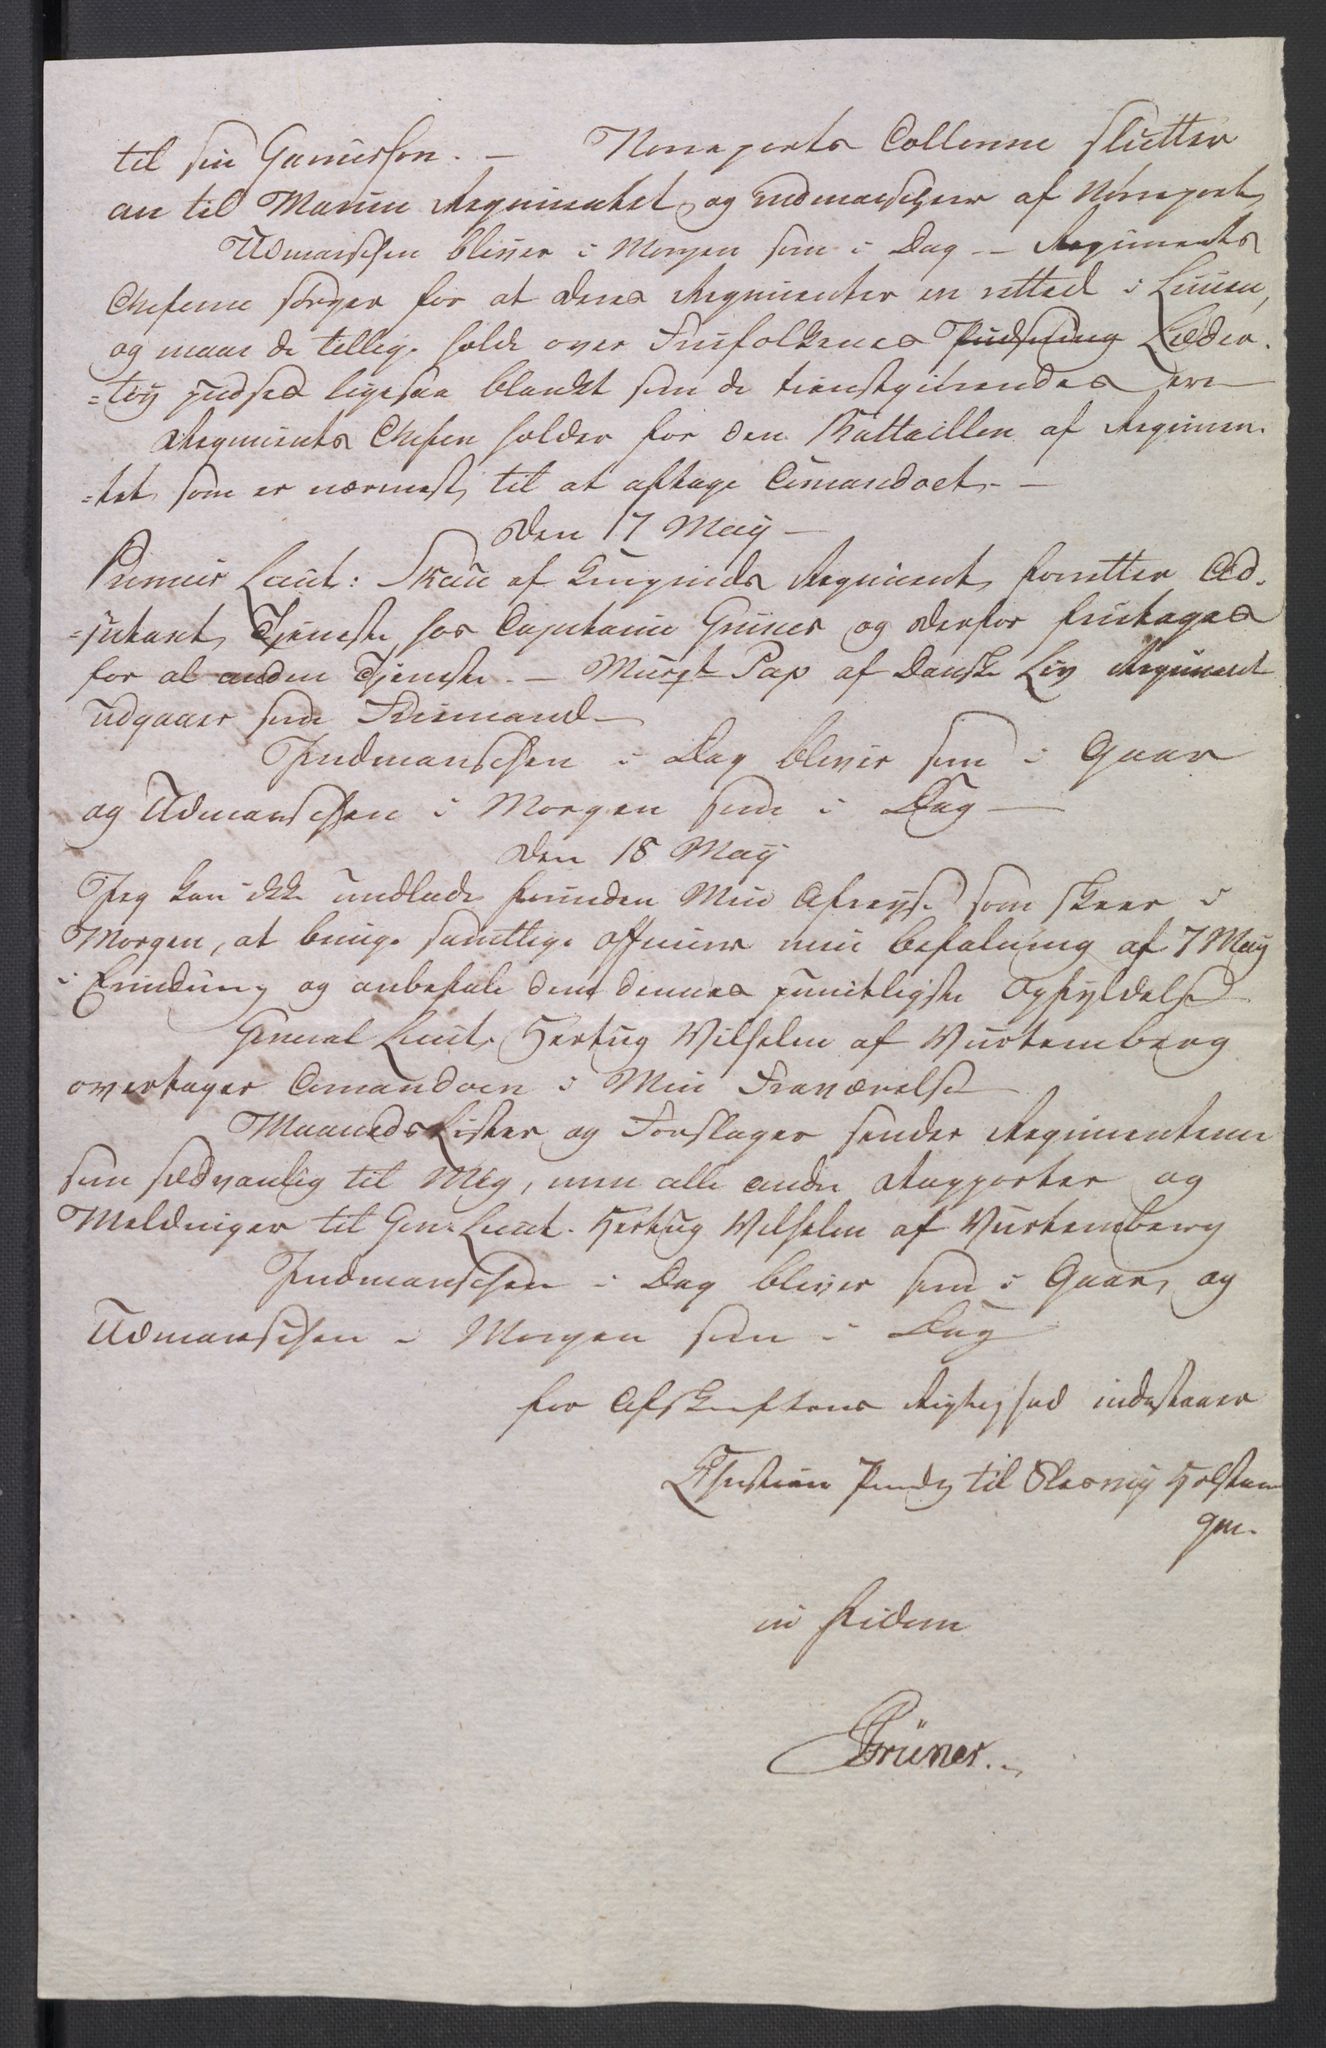 til sin Garnisson. — Norreports Collonne slutter
an til Marine Regimentet og indmarscherer af Nörreport
Udmarschen bliver i Morgen som i Dag — Regiments
Cheferne sörger for at deres Regimenter ere retted i Linien,
og maae de tillige holde over Frifolkenes Pudsning Læder-
=töy pudses ligesaa blankt som de tienstgiörendes ere
Regiments Chefen holder for den Battaillon af Regimen-
=tet som er nærmest til at aftage Comandoet. —
den 17 May —
Premier Lieut: Skau af Kongends Regiment forretter Ad-
=jutant Tjeneste hos Capitaine Grüner og derfor fritages
for al anden Tjeneste. — Musqt Pap af Danske Liv Regiment
udgaaer som Friemand —
Indmarschen i Dag bliver som i Gaar
og Udmarschen i Morgen som i Dag —
den 18 May
Jeg kan ikke undlade forinden Min Afreyse som skeer i
Morgen, at bringe samtlige Officiers min befalning af 7 May
i Erindring og anbefale dem dennes punctligste Opfyldelse
General Lieut. Hertug Vilhelm af Vürtemberg
overtager Comandoen i Min Fraværelse
Maaneds Lister og Forslager sender Regimenterne
som sædvanlig til Mig, men alle andre Rapporter og
Meldninger til Gen: Lieut. Hertug Vilhelm af Vürtemberg
Indmarschen i Dag bliver som i Gaar, og
Udmarschen i Morgen som i Dag
for Afskriftens Rigtighed indestaaer
Christian Prindz til Slesvig Holsteen
Gm.
in fidem
Grüner.